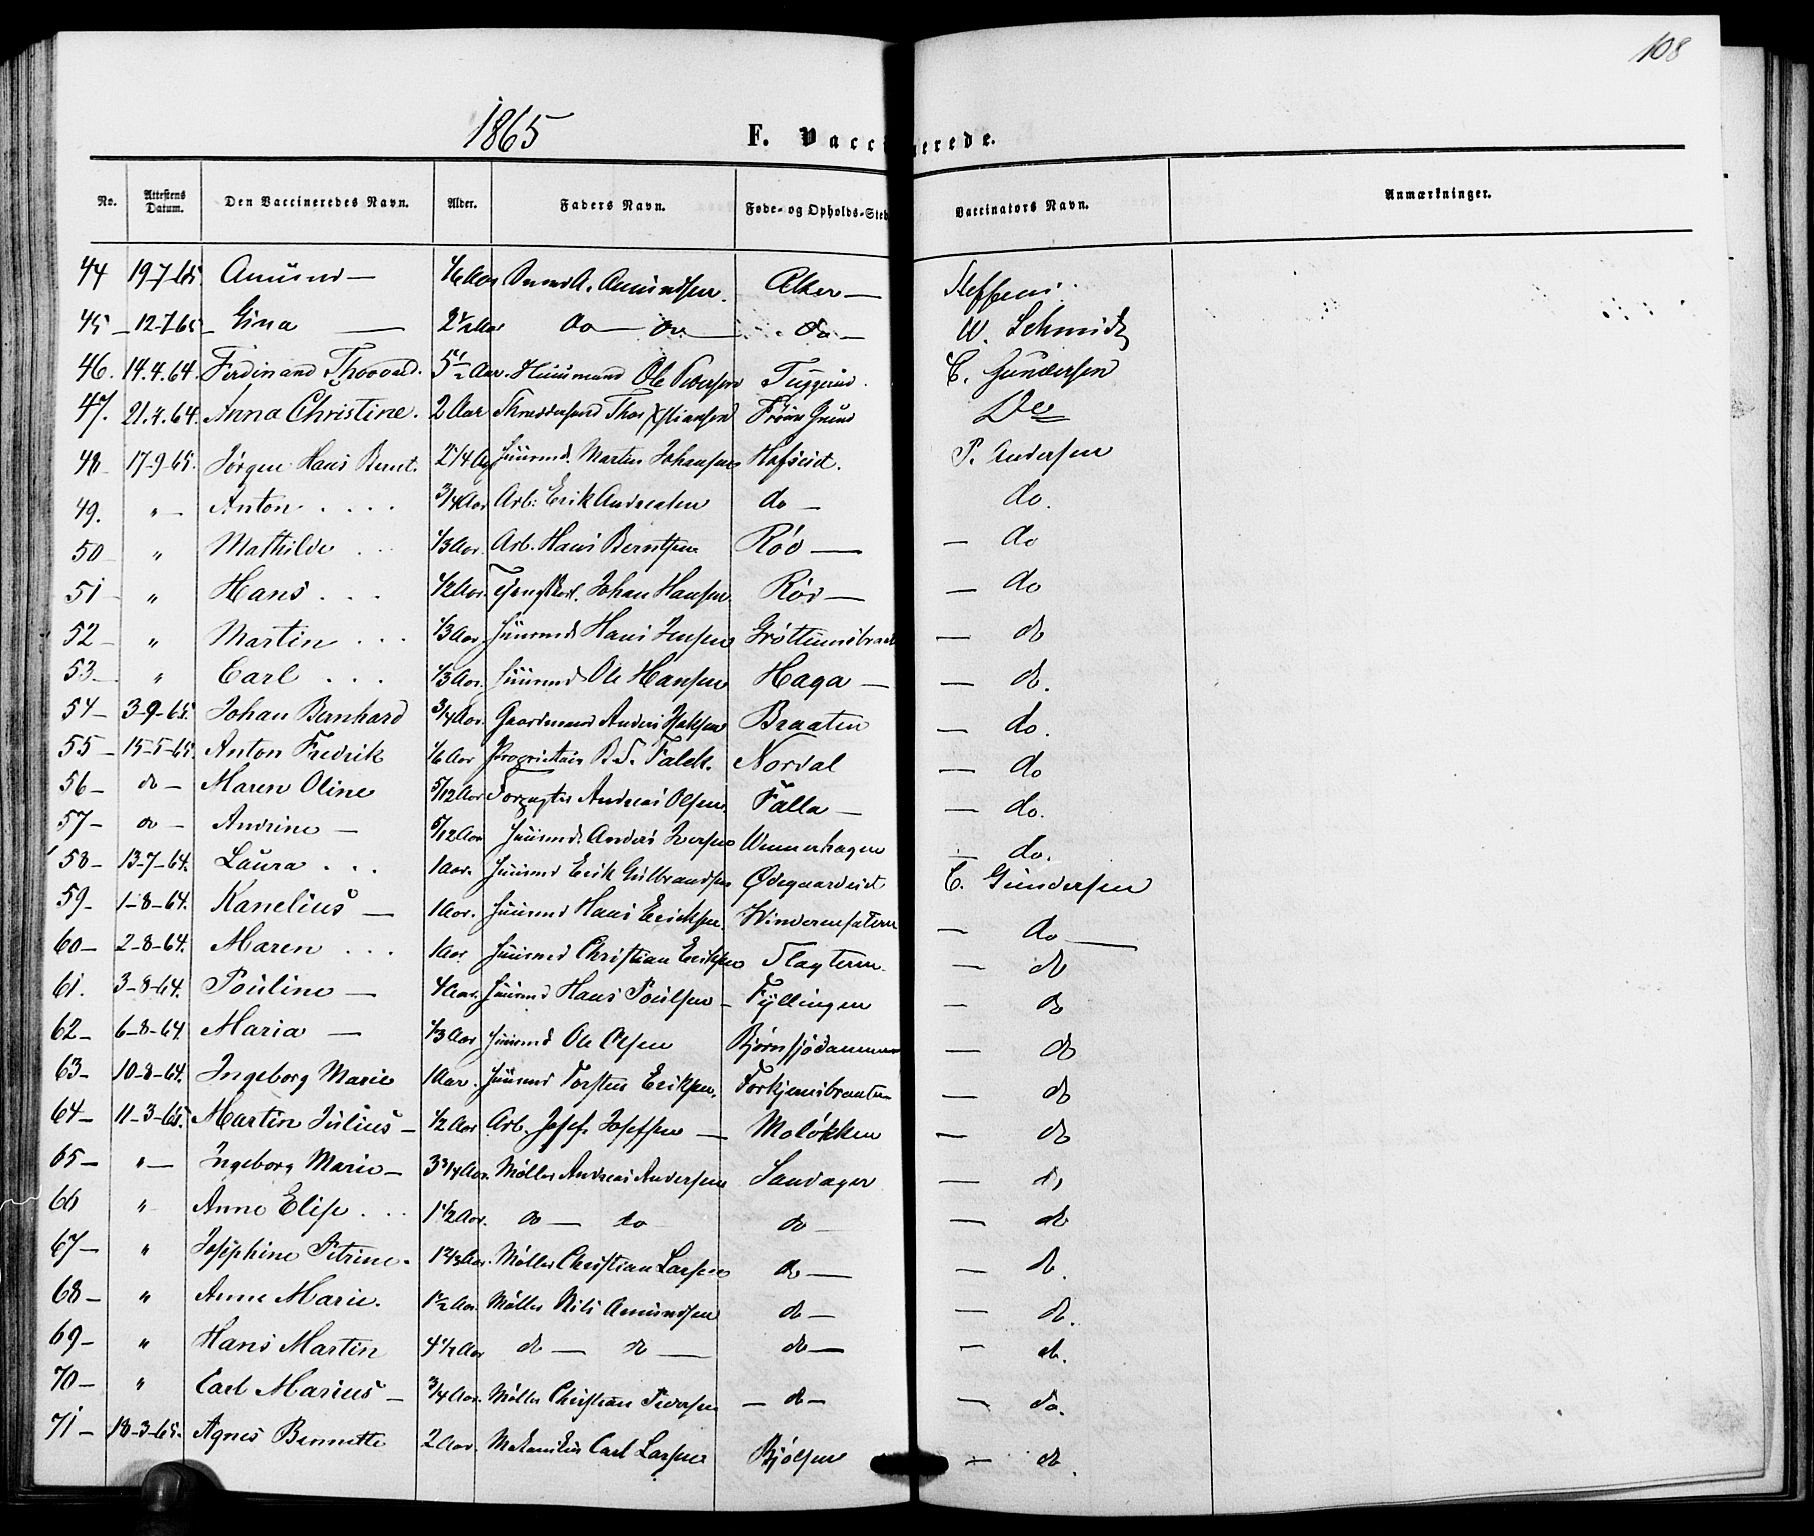 108
1865
F. Vaccinerede.
No. Attestens Datum. Den Vaccineredes Navn. Alder. Faders Navn. Føde- og Opholds-Sted Vaccinators Navn. Anmærkninger.
44 19-7-65. Amund — 1/6 Aar Amundsen. Aker — Steffens.
45 — 12-7-65 — Gina — 2 1/2 Aar do — do — do — W. Schmidt
46. 14.4.64. Ferdinand Thorvald. 5 1/2 Aar. Huusmand Ole Pedersen C. Gundersen
47. 21.4.64. Anna Christine. 2 Aar Thor Xstiansen Do
48 — 17-9-65. Jørgen Hans Bernt. 2 1/4 Aar Huusmd. Martin Johansen P. Andersen
49. " — Anton . . . . 3/4 Aar Arb: Erik Andreasen do — do.
50 — " Mathilde . . . 1/3 Aar. Arb. Hans Berntsen Röd — — do
51 — " Hans . . . 1/2 Aar. Johan Hansen Röd — — do
52 — " Martin . . . 1/3 Aar. Huusmd Hans Jensen — do
53 — " Carl . . . 1/3 Aar. Huusmd Ole Hansen Haga — — do.
54 — 3-9-65. Johan Bernhard 3/4 Aar. Gaardmand Anders Braaten — do.
55 — 15-5-65. Anton Fredrik 1/6 Aar Proprietair Falck. Nordal — do
56 — do — Maren Oline 5/12 Aar Forpagter Andreas Olsen Falla — — do.
57 — do — Andrine — 5/12 Aar Huusmd. Anders Iversen — do.
58 — 13-7-64. Laura . . . 1 Aar. Huusmd Erik Gulbrandsen Ødegaardeiet C. Gundersen
59 — 1-8-64. Kanelius — 1 Aar. Huusmd Hans Ericksen — do —
60 — 2-8-64. Maren . . . 1 Aar Huusmd Christian Eriksen Slagteren. — do
61. 3-8-64. Pouline — Huusmd Hans Poulsen — Fyllingen — do
62 — 6-8-64. Maria — 1/3 Aar Huusmd Ole Olsen Bjørnsjødammen — do
63 — 10-8-64. Ingeborg Marie 1 Aar. Huusmd Torsten Eriksen. — do
64 — 11-3-65. Martin Julius — 1/2 Aar Arb. Josef Josefsen — Moløkken — do
65 — " — Ingeborg Marie — 3 3/4 Aar. Møller Andreas Andersen Sandager — do
66 " Anne Elise . . 1 1/2 Aar. do — do do — — do
67 — " Josephine Petrine. Møller Christian Larsen do — — do.
68 — " Anne Marie. 1 1/2 Aar. Møller Nils Amundsen do — — do.
69 — " Hans Martin 4 1/2 Aar do — do — do — — do.
70 — " Carl Marius — 3/4 Aar. Møller Christian Pedersen — do — — do.
71 — 18-3-65. Agnes Bennette 2 Aar. Carl Larsen Bjølsen — do.